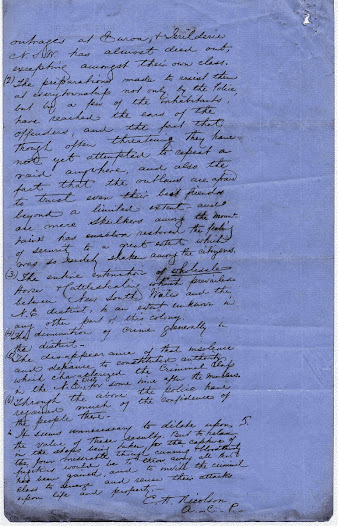 outrages at Euroa, & Jerilderie
N.S.W. has almost died out,
excepting amongst their own class.
(2) The preparations made to resist them
at every township not only by the Police,
but by a few of the inhabitants,
have reached the ears of the
offenders, and the fact that
though often threatening they have
not yet attempted to repeat a
raid anywhere, and also the
fact that the outlaws are afraid
to trust even their best friends
beyond a limited extent and
are mere skulkers among the moun-
tains has restored the feeling
of security to a great extent which
was so rudely shaken among the citizens.
(3) The entire cessation of wholesale
horse & Cattle stealing which prevailed
between New South Wales and the
N.E. district, to an extent unknown in
any other part of this colony.
(4) The diminution of crime generally in
the district.
(5) The disappearance of that insolence
and defiance to constituted authority
which characterized the Criminal Class
in the N.E. for some time after the murders.
(6) Through the above the Police have
regained much of the confidence of
the people there.
It seems unnecessary to dilate upon
value of these results. But to
in the steps being taken for the capture of
the four
would be to throw away all that
has been gained, and to the criminal
class to and renew their attacks
upon life and property.
C. H. Nicolson
A. C. P.